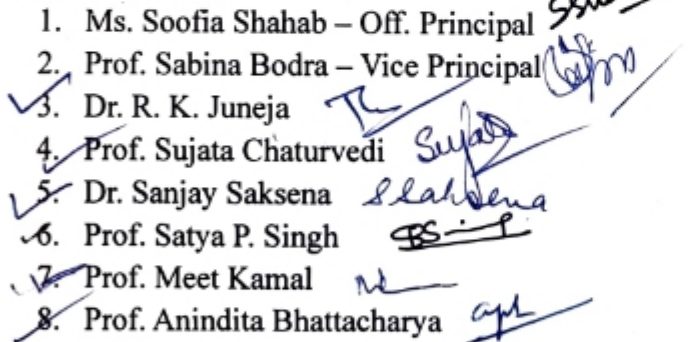 1. Ms. Soofia Shahab – Off. Principal
2. Prof. Sabina Bodra – Vice Principal
3. Dr. R. K. Juneja
4. Prof. Sujata Chaturvedi Sujata
5. Dr. Sanjay Saksena SSaksena
6. Prof. Satya P. Singh
7. Prof. Meet Kamal
8. Prof. Anindita Bhattacharya